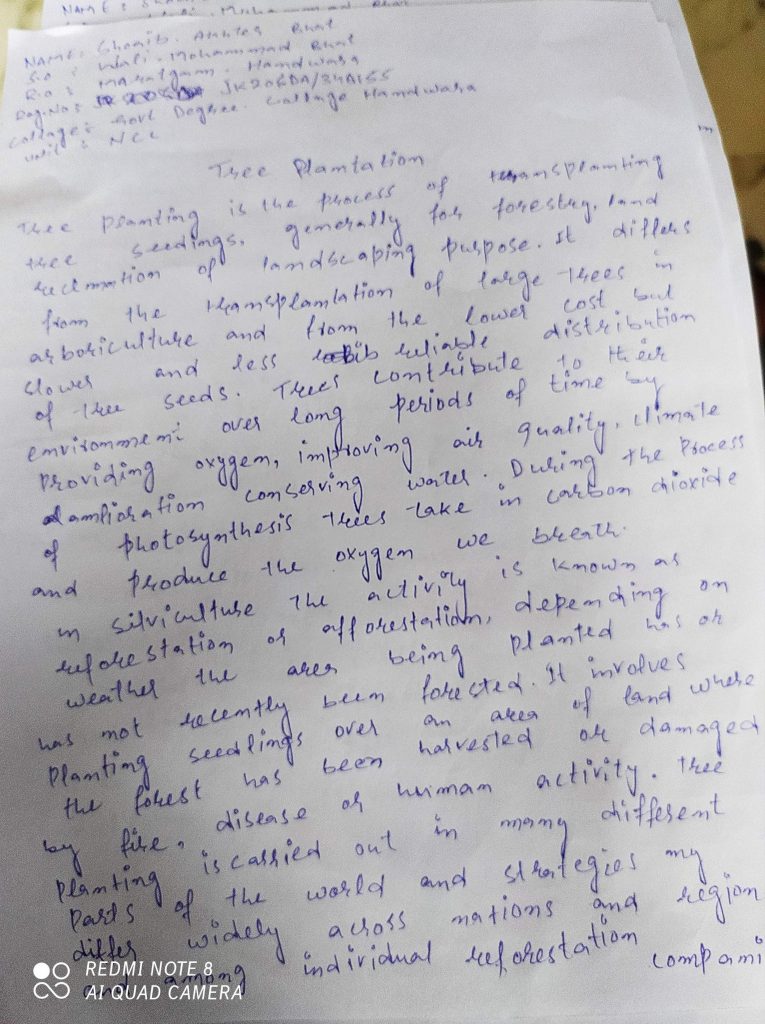 NAME: Shoaib. Akhter Bhat
S.o : Wali. Mohammad Bhat
R.o : Maratgam. Handwara
Reg.No: JK20SDA/241155
Collage: Govt Degree. Collage Handwara
unit : NCC
Tree Plantation
Tree Planting is the process of transplanting
tree seedings, generally for forestry, land
reclmation of landscaping purpose. It differs
from the transplantation of large trees in
arboriculture and from the lower cost but
slower and less reliable distribution
of tree seeds. Trees contribute to their
environment over long periods of time by
providing oxygen, improving air quality, climate
amlioration conserving water. During the Process
of photosynthesis trees take in carbon dioxide
and produce the oxygen we breath.
in silviculture the activity is known as
reforestation or afforestation, depending on
weather the area being planted has or
has not recently been forested. It involves
planting seedlings over an area of land where
the forest has been harvested or damaged
by fire, disease or human activity. Tree
planting is carried out in many different
parts of the world and strategies my
differ widely across nations and region
and among individual reforestation compani
REDMI NOTE 8
AI QUAD CAMERA